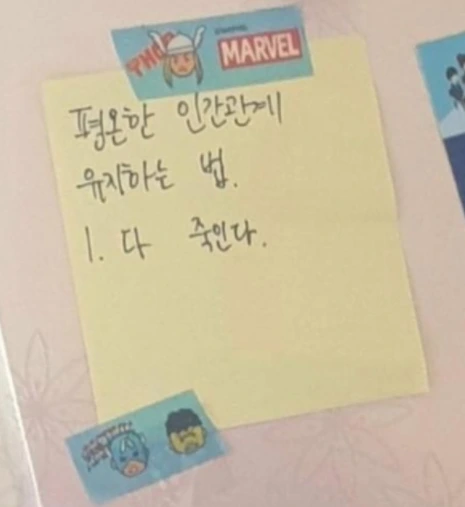 MARVEL
평온한 인간관계
유지하는 법.
1. 다 죽인다.